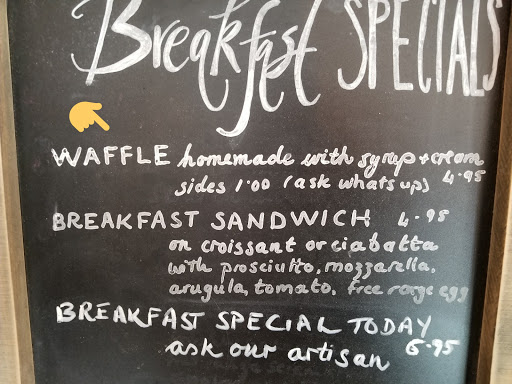 Breakfast SPECIALS
WAFFLE homemade with syrup + cream
sides 1.00 (ask whats up) 4.95
BREAKFAST SANDWICH 4.95
on croissant or ciabatta
with prosciutto, mozzarella,
arugula, tomato, free range egg
BREAKFAST SPECIAL TODAY
ask our artisan 6.95